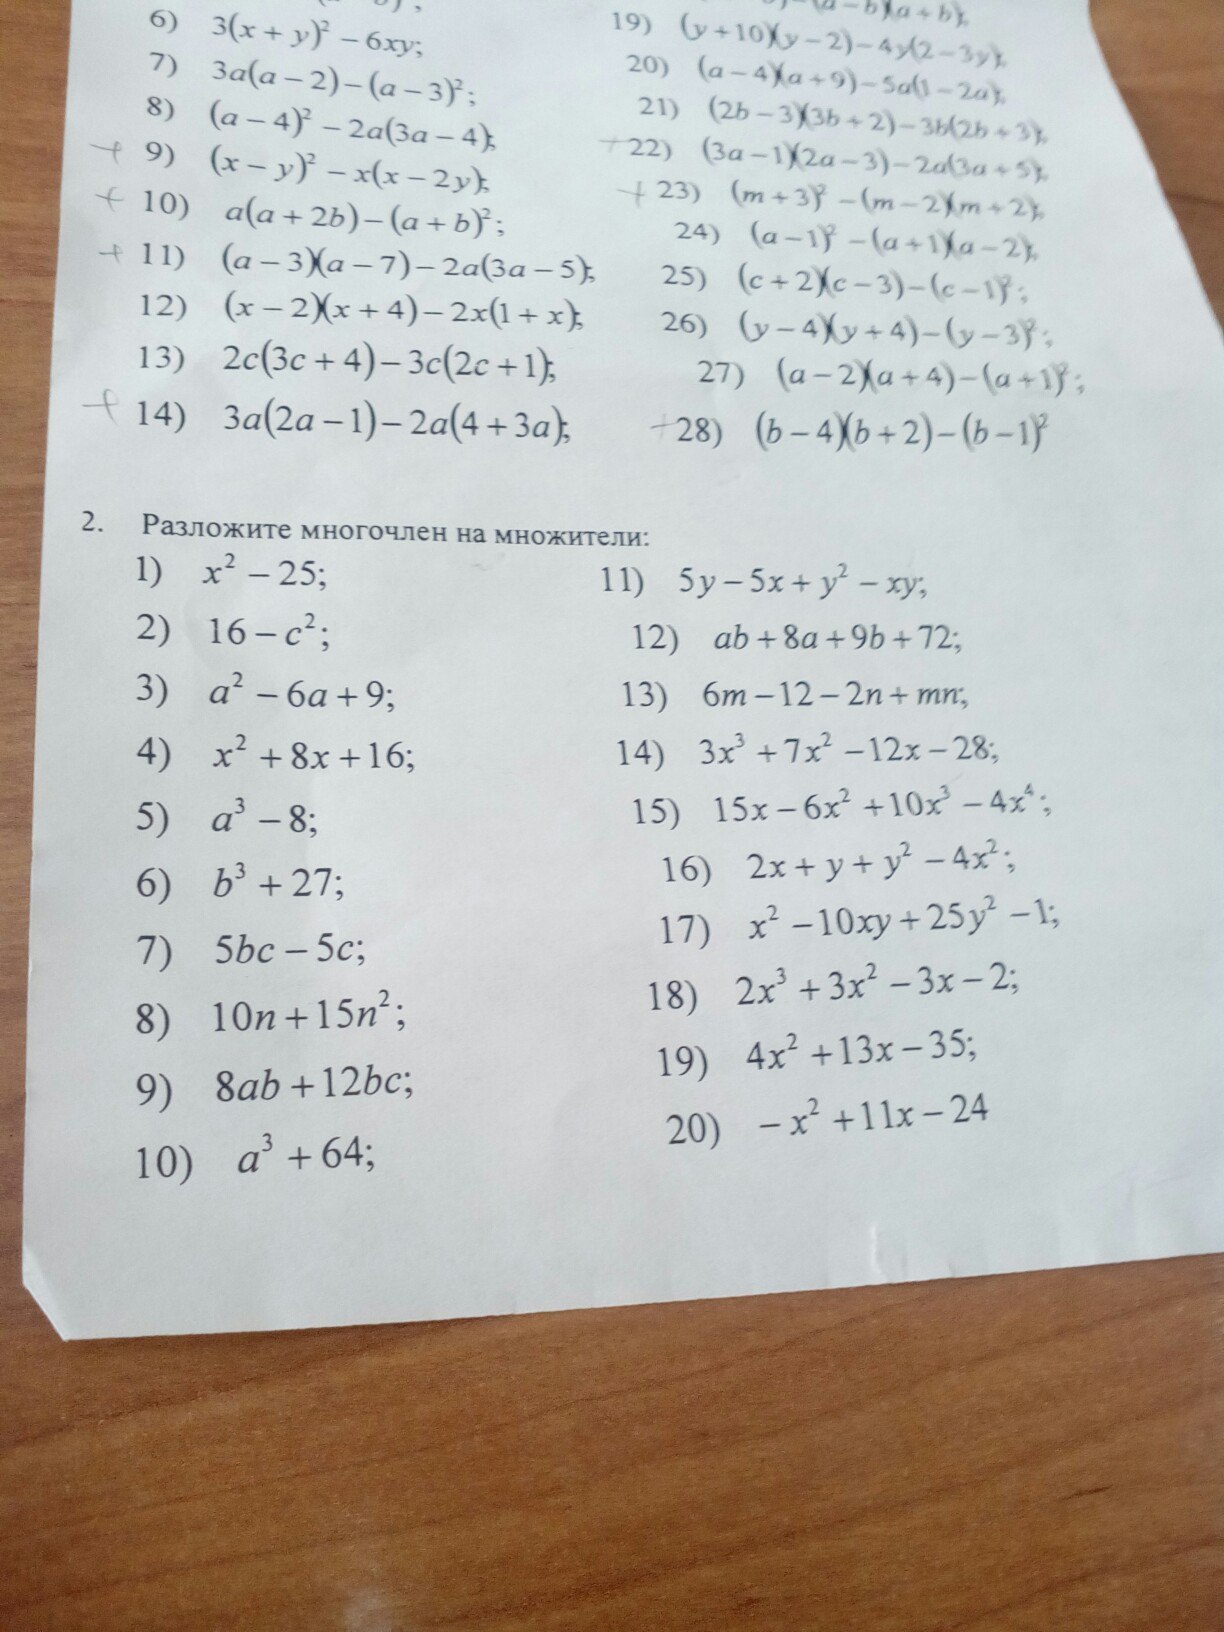 6) 3(x + y)² – 6xy;
7) 3a(a – 2) – (a – 3)²;
8) (a – 4)² – 2a(3a – 4);
+ 9) (x – y)² – x(x – 2y);
+ 10) a(a + 2b) – (a + b)²;
+ 11) (a – 3)(a – 7) – 2a(3a – 5);
12) (x – 2)(x + 4) – 2x(1 + x);
13) 2c(3c + 4) – 3c(2c + 1);
+ 14) 3a(2a – 1) – 2a(4 + 3a);
(a – b)(a + b);
19) (y + 10)(y – 2) – 4y(2 – 3y);
20) (a – 4)(a + 9) – 5a(1 – 2a);
21) (2b – 3)(3b + 2) – 3b(2b + 3);
+ 22) (3a – 1)(2a – 3) – 2a(3a + 5);
+ 23) (m + 3)² – (m – 2)(m + 2);
24) (a – 1)² – (a + 1)(a – 2);
25) (c + 2)(c – 3) – (c – 1)²;
26) (y – 4)(y + 4) – (y – 3)²;
27) (a – 2)(a + 4) – (a + 1)²;
+ 28) (b – 4)(b + 2) – (b – 1)²
2. Разложите многочлен на множители:
1) x² – 25;
2) 16 – c²;
3) a² – 6a + 9;
4) x² + 8x + 16;
5) a³ – 8;
6) b³ + 27;
7) 5bc – 5c;
8) 10n + 15n²;
9) 8ab + 12bc;
10) a³ + 64;
11) 5y – 5x + y² – xy;
12) ab + 8a + 9b + 72;
13) 6m – 12 – 2n + mn;
14) 3x³ + 7x² – 12x – 28;
15) 15x – 6x² + 10x³ – 4x⁴;
16) 2x + y + y² – 4x²;
17) x² – 10xy + 25y² – 1;
18) 2x³ + 3x² – 3x – 2;
19) 4x² + 13x – 35;
20) – x² + 11x – 24